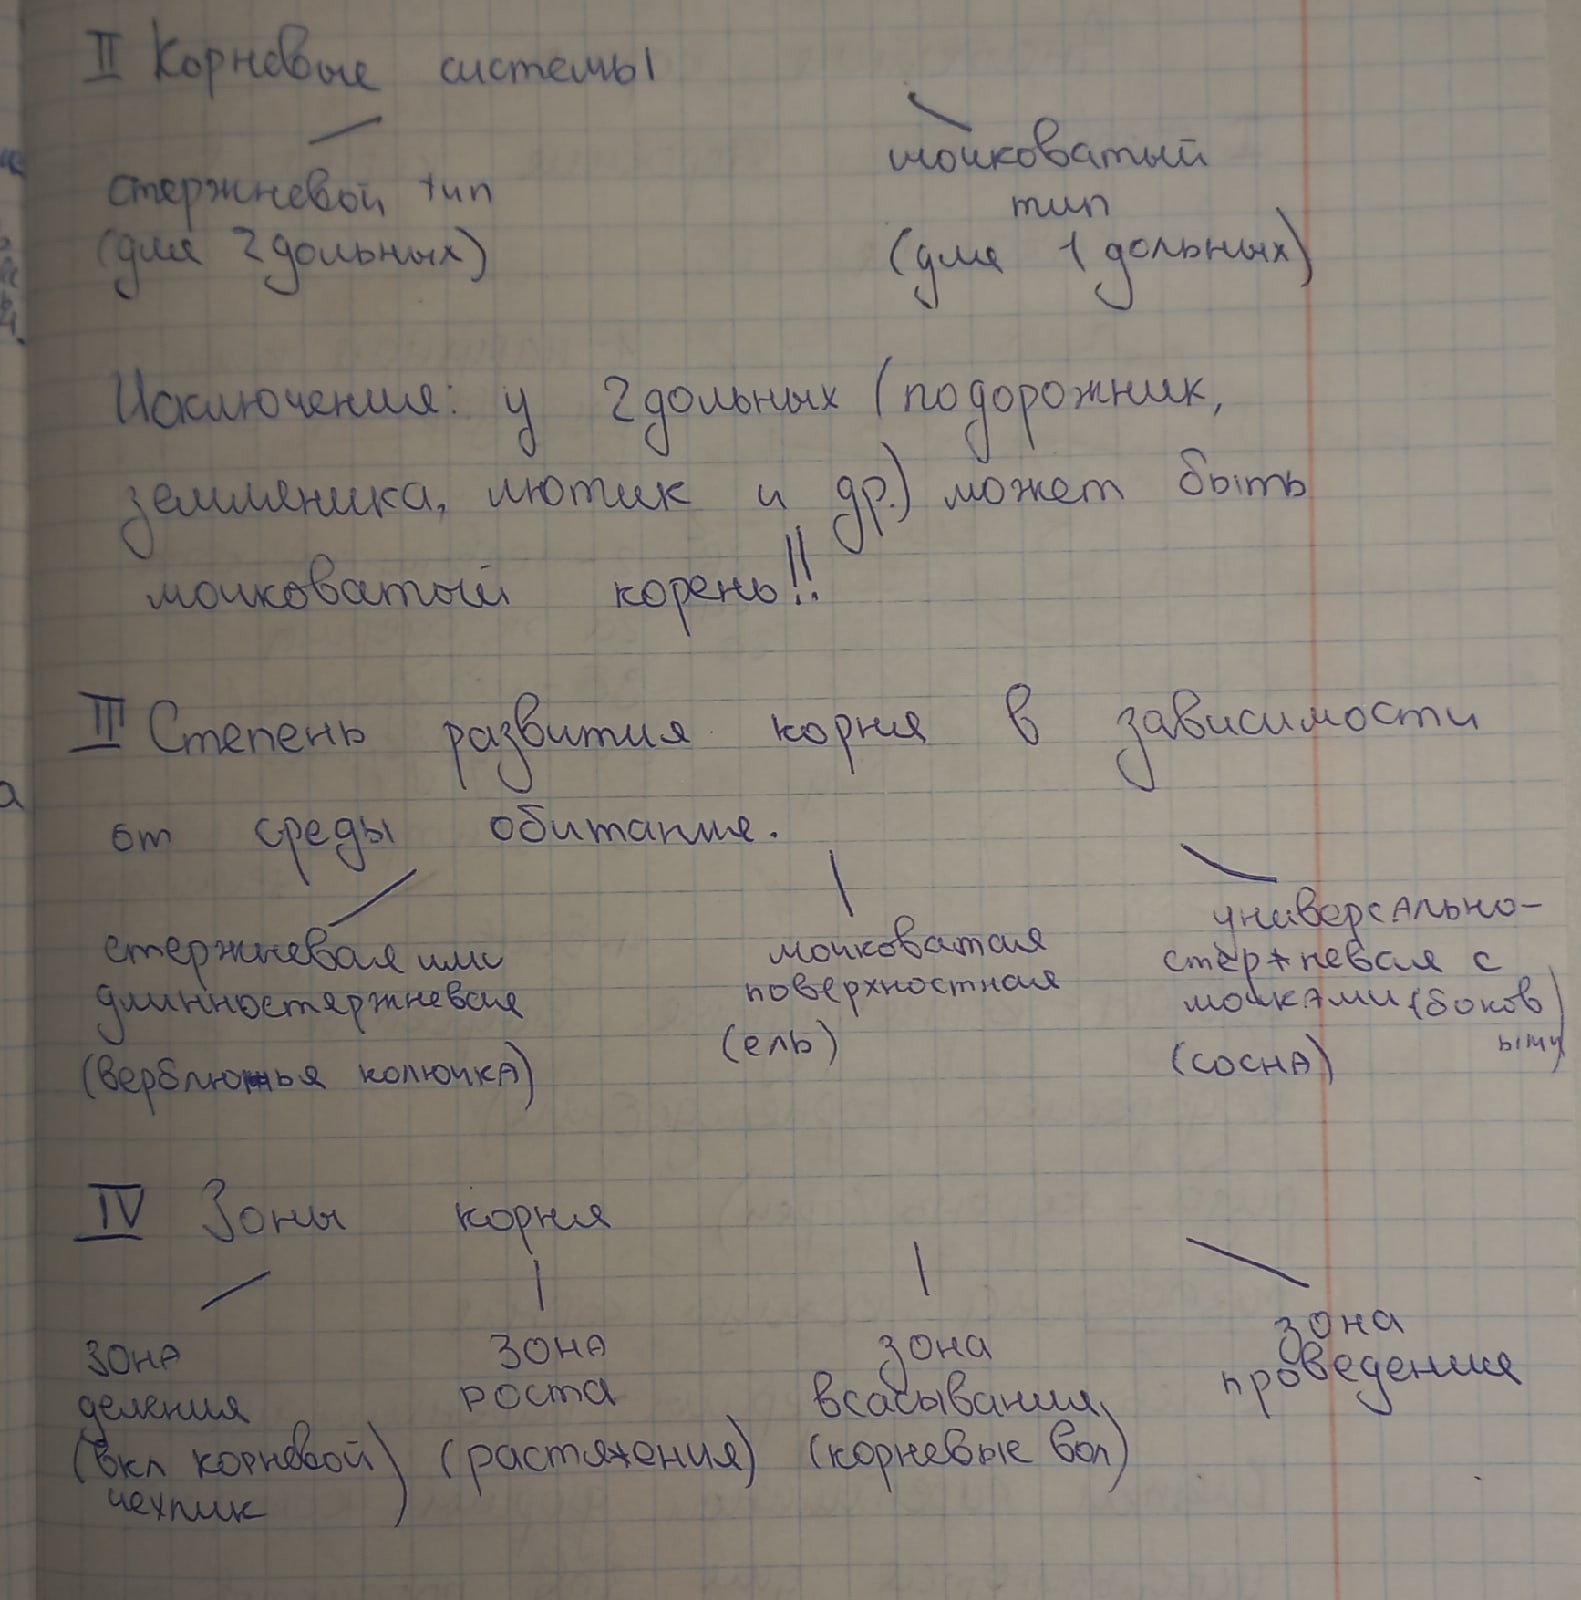 II Корневые системы
стержневой тип
(для 2дольных)
мочковатый
тип
(для 1дольных)
Исключения: у 2дольных (подорожник,
земляника, лютик и др.) может быть
мочковатый корень!!
III Степень развития корня в зависимости
от среды обитания.
стержневая или
длинностяржневая
(верблюжья колючка)
мочковатая
поверхностная
(ель)
универсально-
стержневая с
мочками (боков
ыми)
(сосна)
IV Зоны корня
зона
деления
(вкл корневой
чехлик)
зона
роста
(растяжения)
зона
всасывания
(корневые вол)
зона
проведения